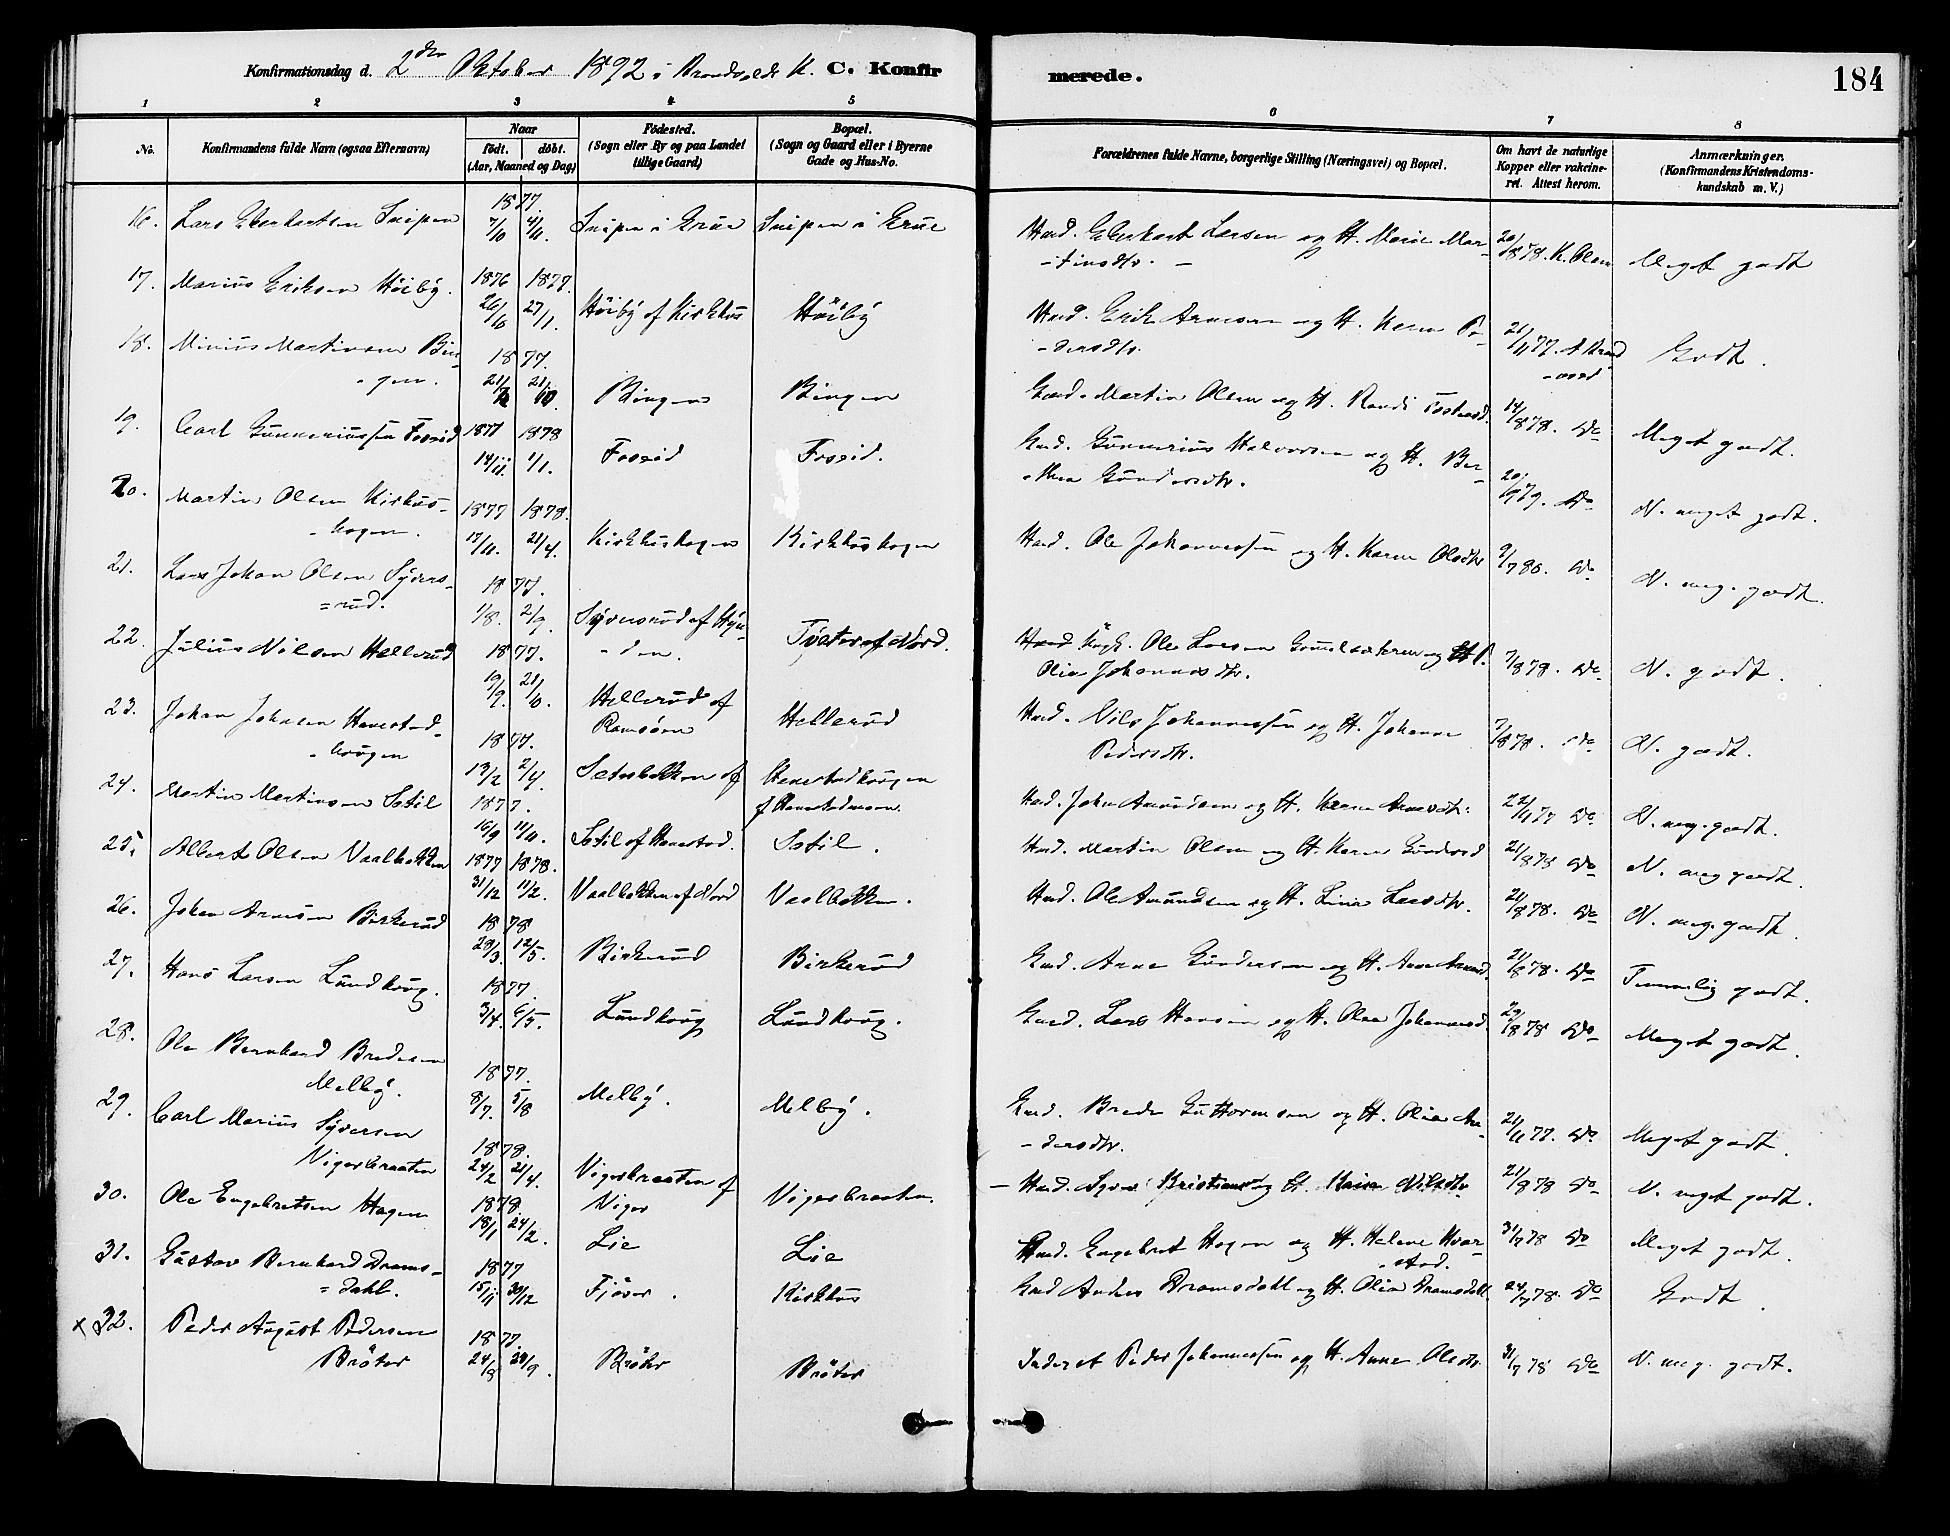 Konfirmationsdag d. 2den Oktober 1892 i Brandvolds K. C. Konfirmerede. 184
1 2 3 4 5 6 7 8
No. Konfirmandens fulde Navn (ogsaa Efternavn) Naar Født. døbt. (Aar, Maaned og Dag) Fødested. (Sogn eller By og paa Landet tillige Gaard) Bopæl. (Sogn og Gaard eller i Byerne Gade og Hus-No. Forældrenes fulde Navne, borgerlige Stilling (Næringsvei) og Bopæl. Om havt de naturlige Kopper eller vakcineret. Attest herom. Anmærkninger. (Konfirmandens Kristendomskundskab m. V.)
16. Lars Ekerhartsen Snipen 1877 7/10 4/11. Snipen i Grue Snipen i Grue Hmd. Ekerhart Larsen og H. Marie Mar-tinsdtr. 20/8 78. K. Olsen Meget godt
17. Marius Eriksen Höiby. 1876 1877. 26/10 27/1. Höiby af Kirkhus Höiby Hmd. Erik Arnesen og H. Karen Pe-dersdtr. 21/11 77. Godt.
18. Minius Martinsen Bin-gen. 1877. Bingen Bingen Gmd. Martin Olsen og H. Randi 14/8 78. Do Meget godt.
19. Carl Gunneriussen Fossid 1877 1878 14/11. 1/1. Fossid Fossid. Gmd. Gunnerius Halvorsen og H. Ber-thea Gundersdtr. 20/9 79. Do N. meget godt.
20. Martin Olsen Kirkus-hagen. 1877 1878. 17/11. 21/4. Kirkhushagen Kirkhushagen Hmd. Ole Johannessen og H. Karen Olsdtr 9/7 80. Do N. meg. godt.
21. Lars Johan Olsen Syvers=rud. 1877. 1/8. 2/9. Syversrud af Hyn-den. Tveter af Nord. Ole Larsen og Olia Johannesdtr. 7/8 78. Do N. godt.
22. Julius Nilsen Hellerud 1877. 19/9. 21/10. Hellerud af Hellerud Hmd. Nils Johannessen og H. Johanne Pedersdtr. 7/8 78. Do N. godt.
23. Johan Johnsen Hanestad-haugen 1877. 13/2 2/4. Sæterbakken af Hanestadhaugen Hmd. John Amundsen og H. Karen Arnesdtr. 22/11 77 Do N. meg. godt.
24. Martin Martinsen Sotil 1877. 16/9 11/11. Sotil af Hanestad. Sotil. Hmd. Martin Olsen og H. Karen 21/8 78 Do N. meg godt.
25. Albert Olsen Vaalbakken 1877 1878. 31/12 11/2. Vaalbakken af Nord Vaalbakken. Hmd. Ole Amundsen og H. Lina Larsdtr. 21/8 78. Do N. meg. godt.
26. Johan Arnesen Birkerud 1878 28/3. 12/5. Birkerud Birkerud Gmd. Arne Gundersen og H. Anne 21/8 78. Do Temmelig godt.
27. Hans Larsen Lundhaug. 1877. 3/4. 6/5. Lundhaug Lundhaug. Gmd. Lars Hansen og H. Olea Johannesd. 29/8 78 Do Meget godt.
28. Ole Bernhard Bredesen Melby. 1877. 8/7. 5/8 Melby. Melby. Gmd. Brede Guttormsen og H. Olia An-dersdtr. 21/11 77. Do Meget godt.
29. Carl Marius Syversen Nigersbraaten 1878. 24/2 21/4. Nigersbraaten af Niger Nigersbraaten. Hmd. Syver Kristiansen og H. Karen Nilsdtr 21/8 78 Do N. meget godt.
30. Ole Engebretsen Hagen 1878. 18/1 24/2. Lie Lie Engebret Hagen og H. Helene Kvar-stad. 31/7 78 Do Meget godt.
31. Gustav Bernhard Drams=dahl. 1877 15/11 30/12 Fjöser. Kirkhus Gmd Anders Dramsdahl og H. Olia Dramsdahl. 24/7 78. Do Godt.
x 32. Peder August Pedersen Bröter 1877. 24/8 30/9. Bröter Bröter Inderst Peder Johannessen og H. Anne Olsdtr. 31/7 78 Do N. meg. godt.